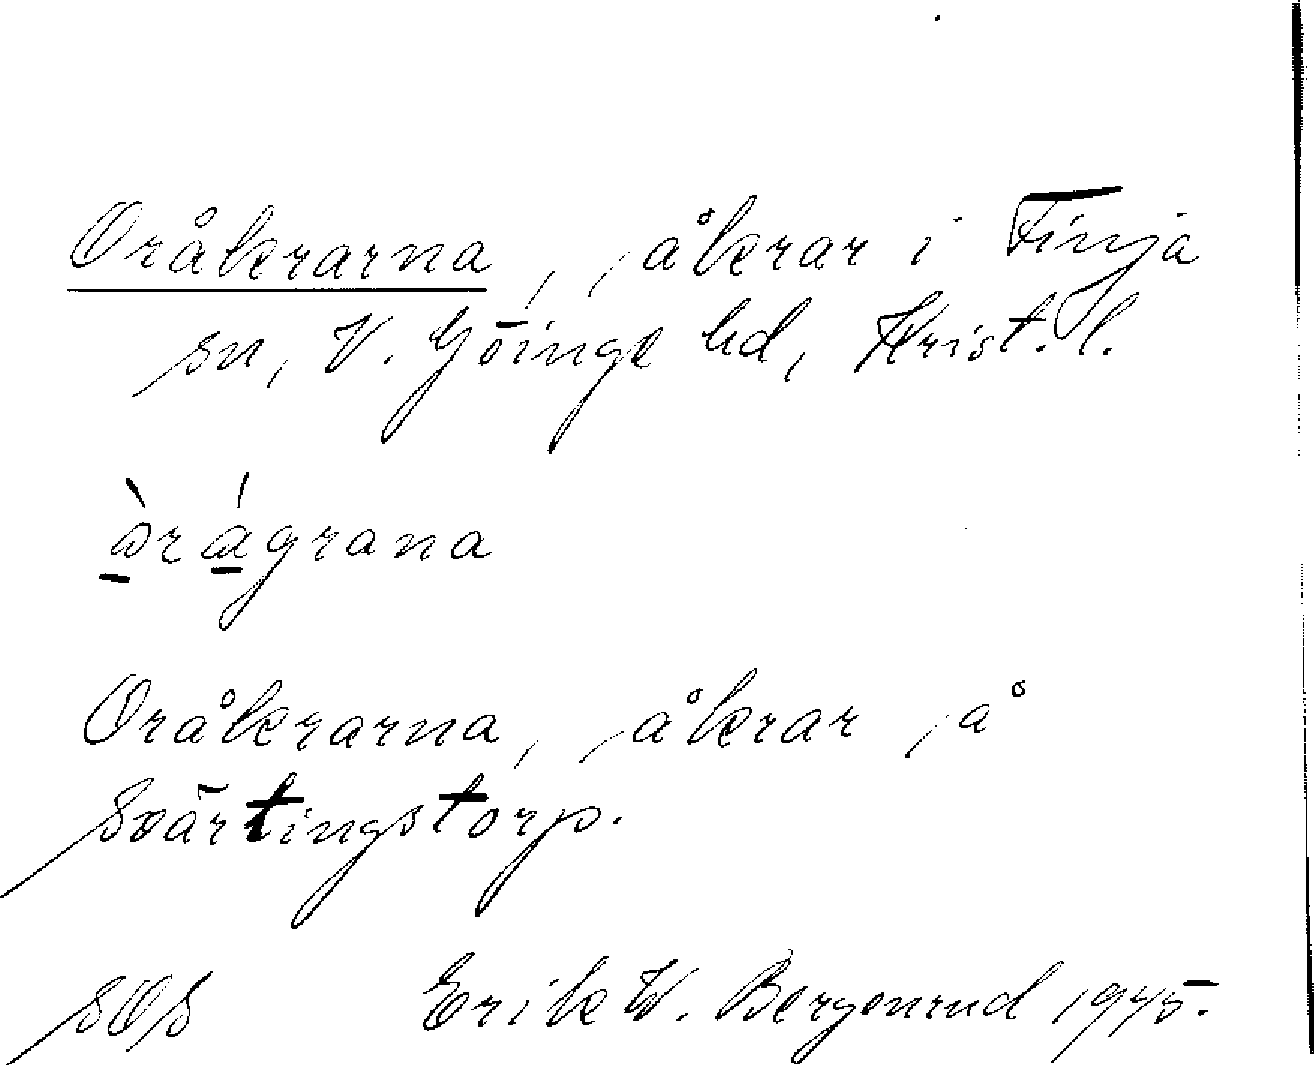 Oråkrarna, åkrar i Finja
sn, V. Göinge hd, Krist. l.
òrágrana
Oråkrarna, åkrar på
Svärtingstorp.
SOS Erik W. Bergenrud 1945.